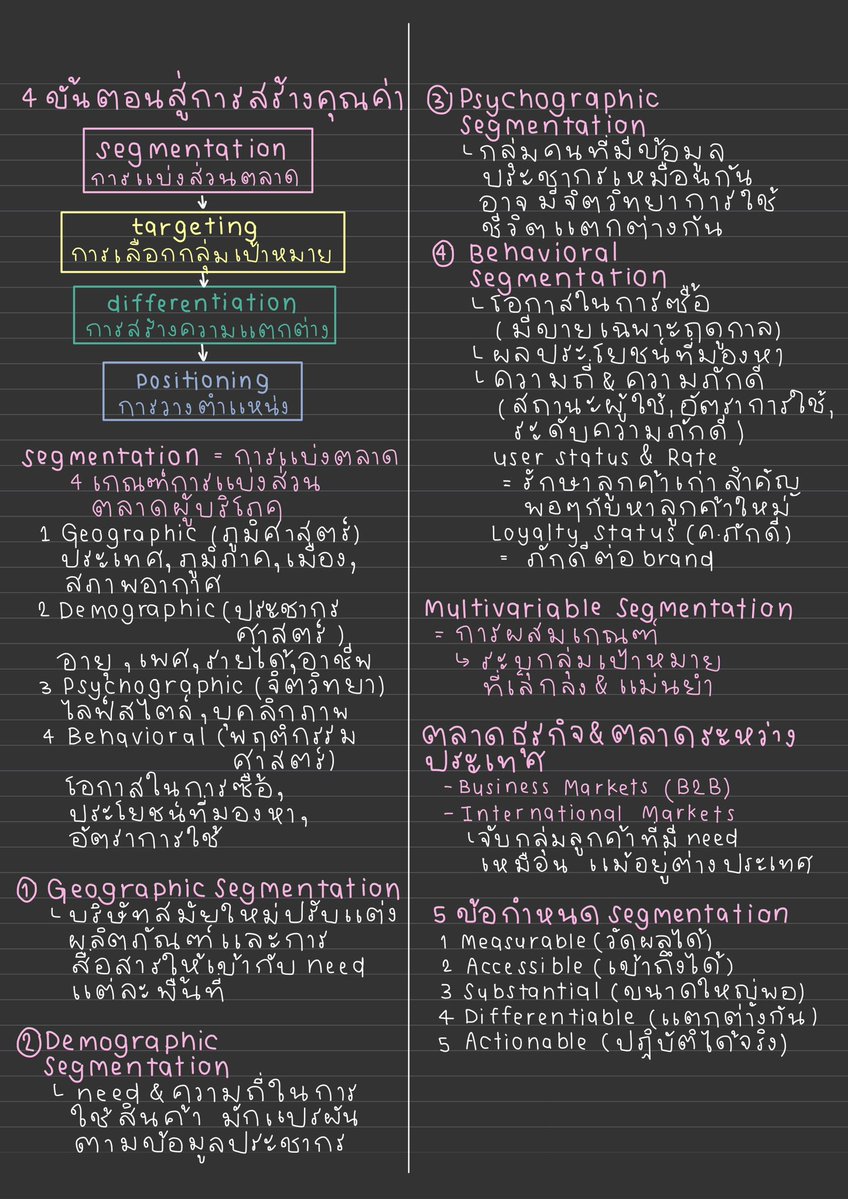 4 ขั้นตอนสู่การสร้างคุณค่า
segmentation
การแบ่งส่วนตลาด
targeting
การเลือกกลุ่มเป้าหมาย
differentiation
การสร้างความแตกต่าง
positioning
การวางตำแหน่ง
segmentation = การแบ่งตลาด
4 เกณฑ์การแบ่งส่วน
ตลาดผู้บริโภค
1 Geographic (ภูมิศาสตร์)
ประเทศ, ภูมิภาค, เมือง,
สภาพอากาศ
2 Demographic (ประชากร
ศาสตร์)
อายุ, เพศ, รายได้, อาชีพ
3 Psychographic (จิตวิทยา)
ไลฟ์สไตล์, บุคลิกภาพ
4 Behavioral (พฤติกรรม
ศาสตร์)
โอกาสในการซื้อ,
ประโยชน์ที่มองหา,
อัตราการใช้
① Geographic Segmentation
└ บริษัทสมัยใหม่ปรับแต่ง
ผลิตภัณฑ์และการ
สื่อสารให้เข้ากับ need
แต่ละพื้นที่
② Demographic
Segmentation
└ need & ความถี่ในการ
ใช้สินค้า มักแปรผัน
ตามข้อมูลประชากร
③ Psychographic
Segmentation
└ กลุ่มคนที่มีข้อมูล
ประชากรเหมือนกัน
อาจมีจิตวิทยาการใช้
ชีวิตแตกต่างกัน
④ Behavioral
Segmentation
└ โอกาสในการซื้อ
(มีขายเฉพาะฤดูกาล)
└ ผลประโยชน์ที่มองหา
└ ความถี่ & ความภักดี
(สถานะผู้ใช้, อัตราการใช้,
ระดับความภักดี)
user status & Rate
= รักษาลูกค้าเก่า สำคัญ
พอๆกับหาลูกค้าใหม่
Loyalty status (ค.ภักดี)
= ภักดีต่อ brand
Multivariable Segmentation
= การผสมเกณฑ์
↳ ระบุกลุ่มเป้าหมาย
ที่เล็กลง & แม่นยำ
ตลาดธุรกิจ & ตลาดระหว่าง
ประเทศ
- Business Markets (B2B)
- International Markets
└ จับกลุ่มลูกค้าที่มี need
เหมือน แม้อยู่ต่างประเทศ
5 ข้อกำหนด segmentation
1 Measurable (วัดผลได้)
2 Accessible (เข้าถึงได้)
3 Substantial (ขนาดใหญ่พอ)
4 Differentiable (แตกต่างกัน)
5 Actionable (ปฏิบัติได้จริง)